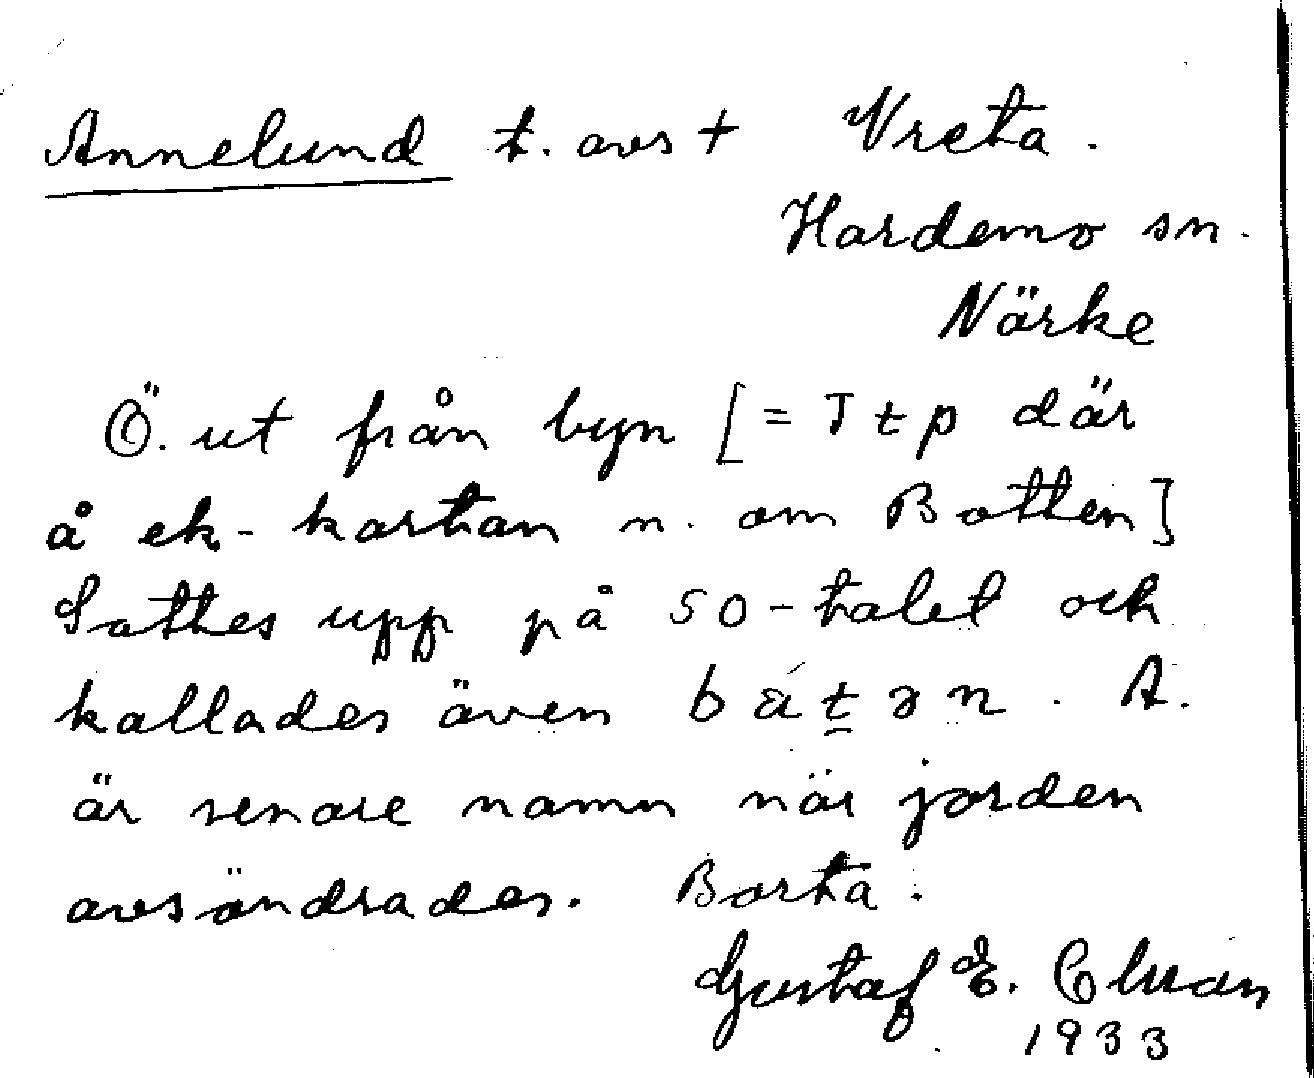 Annelund t. avs † Vreta.
Hardemo sn.
Närke
Ö. ut från byn [= Ttp där
å ek-kartan n. om Botten]
Sattes upp på 50-talet och
kallades även bátən. A.
är senare namn när jorden
avsöndrades. Borta.
Gustaf E.
1933